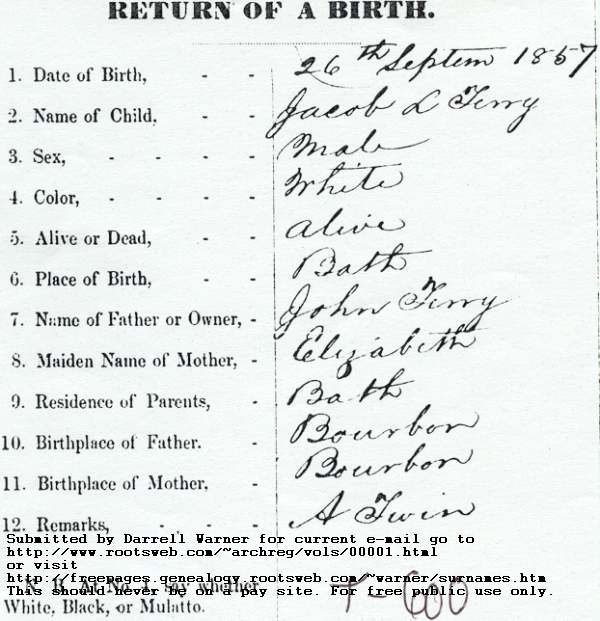 RETURN OF A BIRTH.
1. Date of Birth, - - 26th Septem 1857
2. Name of Child, - - Jacob L Terry
3. Sex, - - - - Male
4. Color, - - - - White
5. Alive or Dead, - - alive
6. Place of Birth, - - Bath
7. Name of Father or Owner, - John Terry
8. Maiden Name of Mother, - Elizabeth
9. Residence of Parents, - Bath
10. Birthplace of Father. - Bourbon
11. Birthplace of Mother, - Bourbon
12. Remarks, - - - A Twin
Submitted by Darrell Warner for current e-mail go to
http://www.rootsweb.com/~archreg/vols/00001.html
or visit
http://freepages.genealogy.rootsweb.com/~warner/surnames.htm
N. B. At No. 4, say whether
This should never be on a pay site. For free public use only.
White, Black, or Mulatto.
600